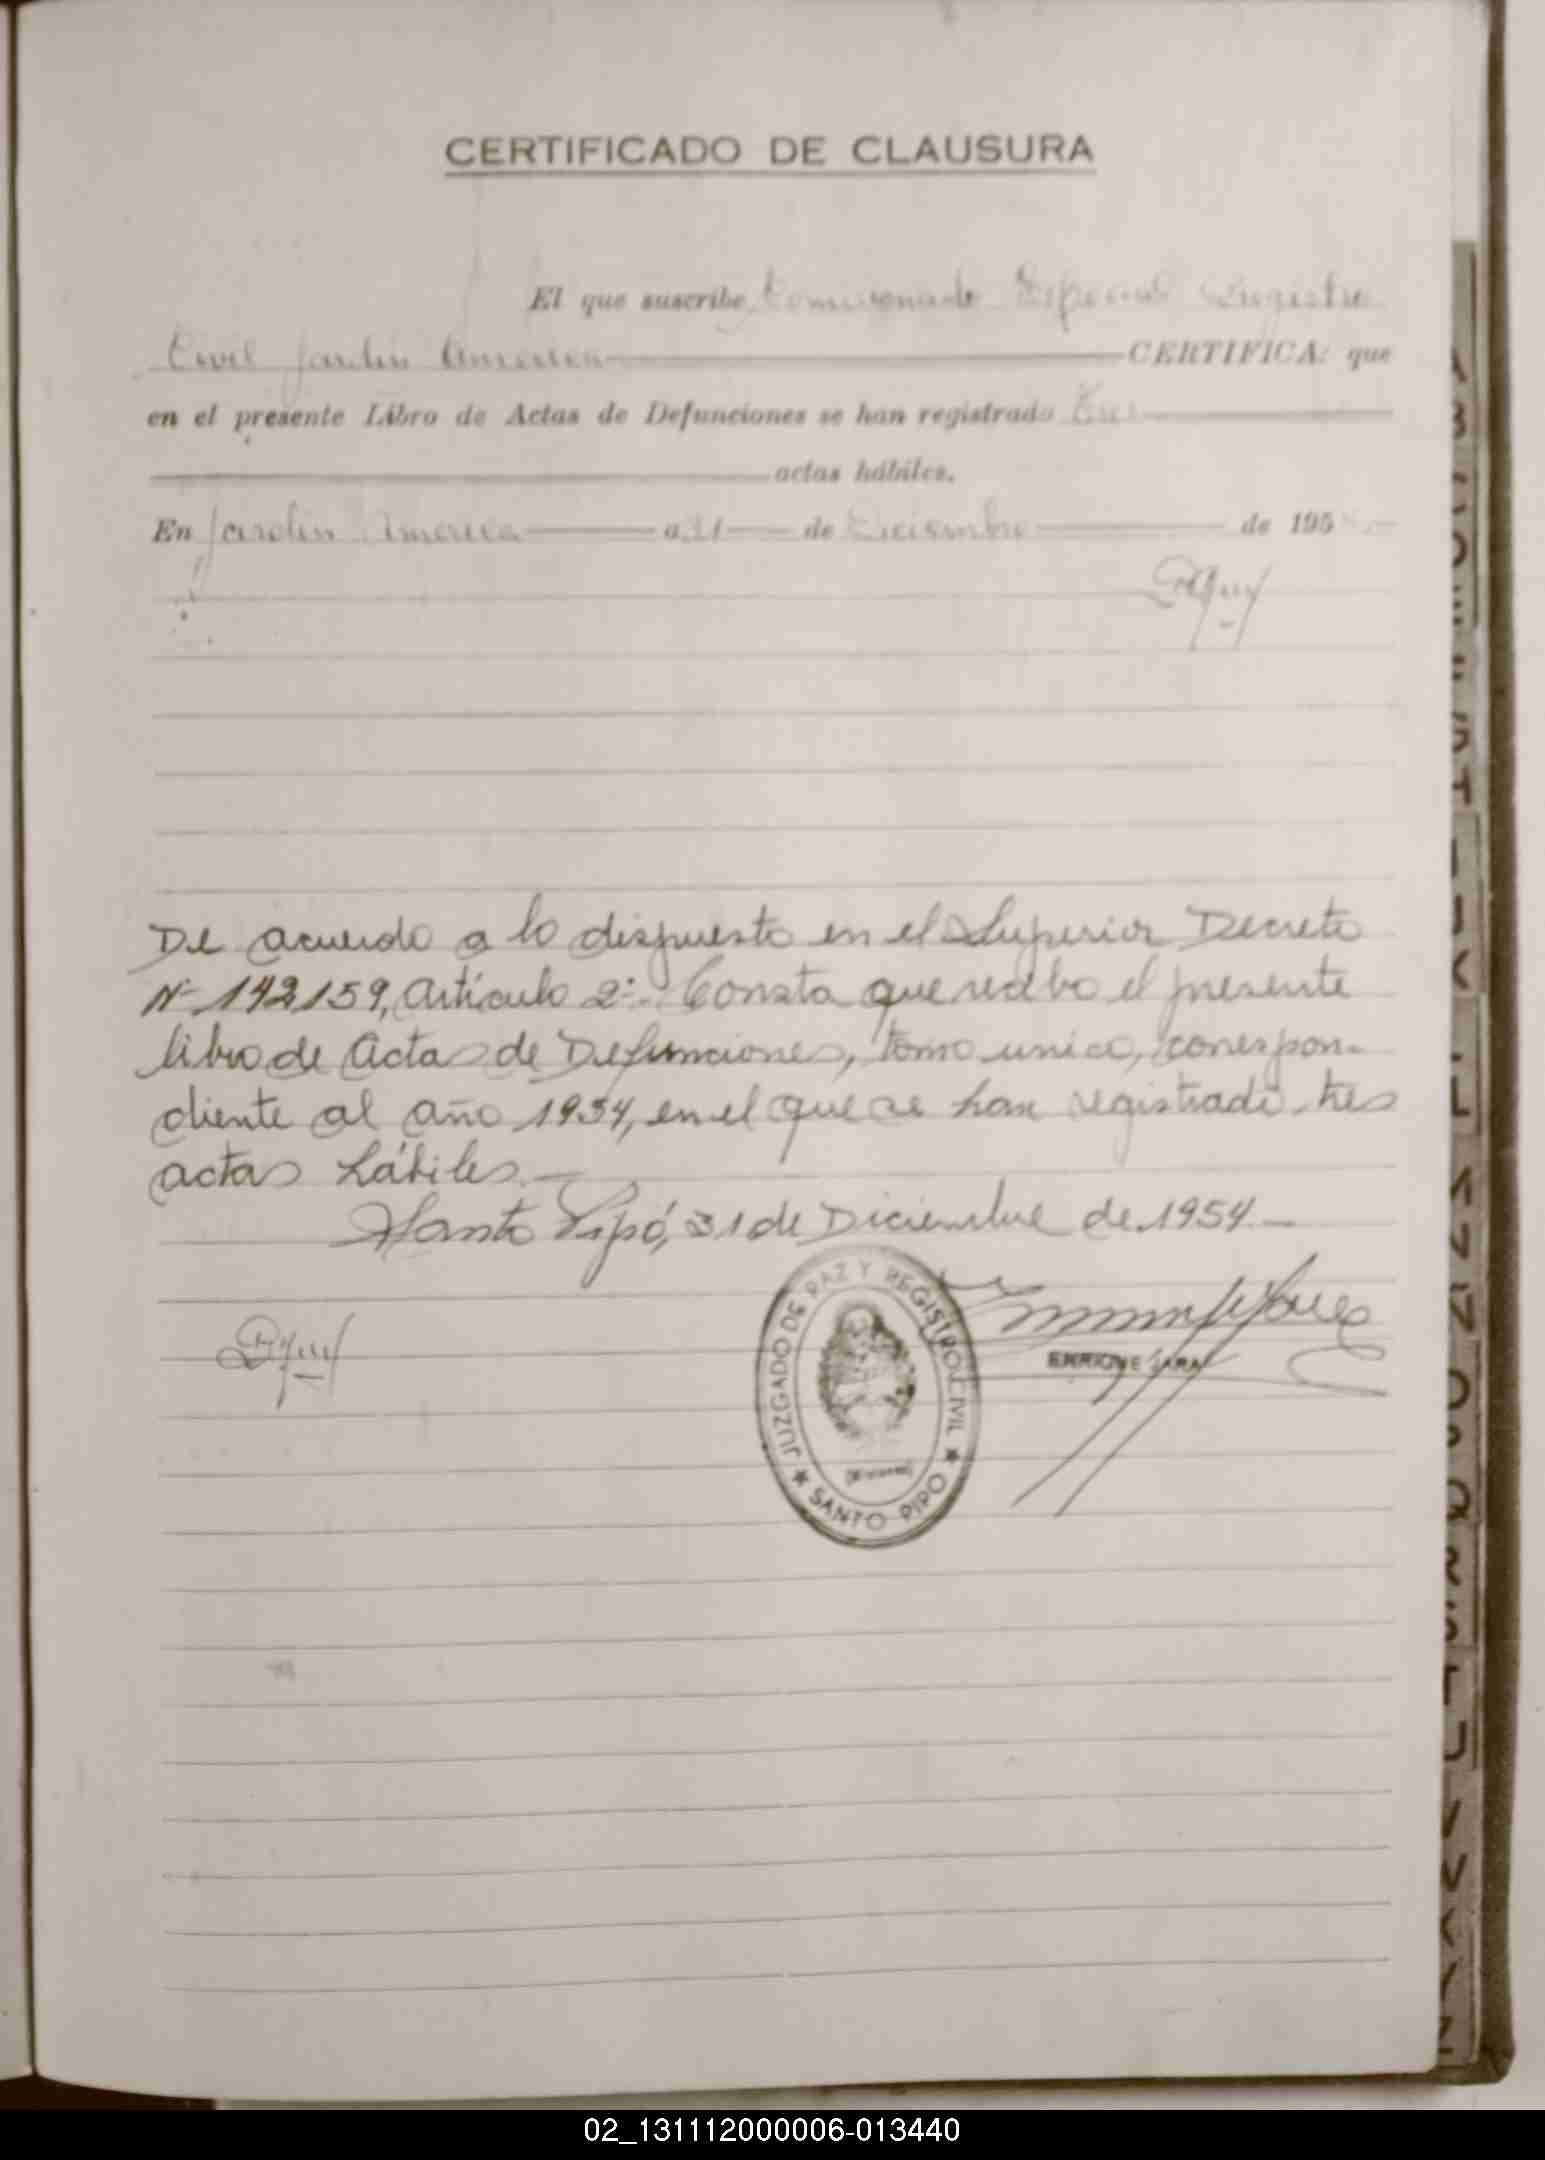 CERTIFICADO DE CLAUSURA
El que suscribe, Comisionado Especial Registro
Civil Jardin America CERTIFICA: que
en el presente Libro de Actas de Defunciones se han registrado Tres
actas hábiles.
En Jardin America a 31 de Diciembre de 1954
De acuerdo a lo dispuesto en el Superior Decreto
Nº 142159, Artículo 2º. Consta que recibo el presente
libro de Actas de Defunciones, tomo unico, correspon-
diente al año 1954, en el que se han registrado tres
actas hábiles.—
Santo Pipó, 31 de Diciembre de 1954.—
JUZGADO DE PAZ Y REGISTRO CIVIL
★ SANTO PIPO ★
(Misiones)
ENRIQUE JARA
A
B
C
D
E
F
G
H
I
J
K
L
LL
M
N
Ñ
O
P
Q
R
S
T
U
V
W
X
Y
Z
02_131112000006-013440